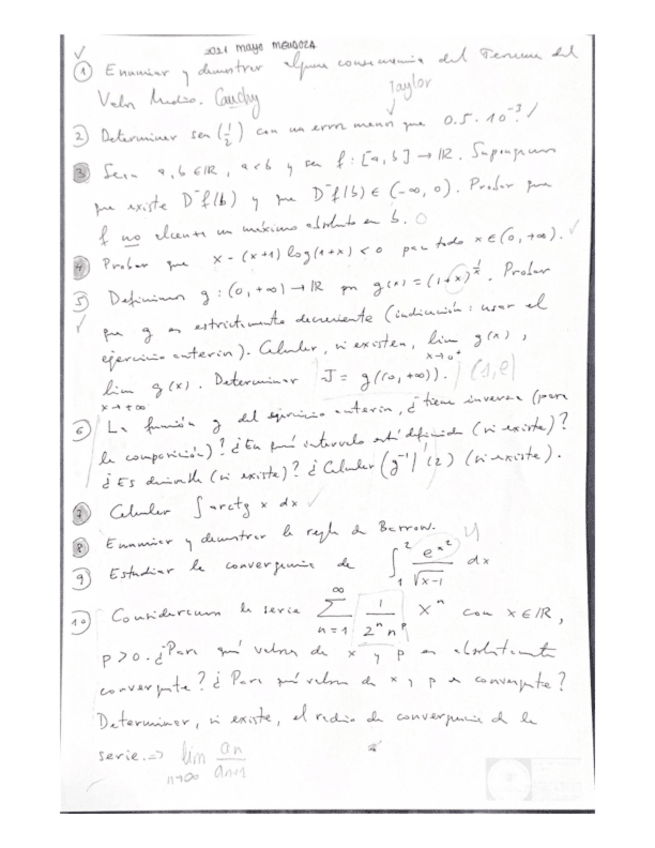 2021 mayo MENDOZA
① Enunciar y demostrar alguna consecuencia del Teorema del
Valor Medio. Cauchy
Taylor
② Determinar sen(1/2) con un error menor que 0.5·10⁻³. ✓
③ Sean a, b ∈ ℝ, a<b y sea f: [a,b] → ℝ. Supongamos
que existe D⁻f(b) y que D⁻f(b) ∈ (-∞, 0). Probar que
f no alcanza un máximo absoluto en b.
④ Probar que x - (x+1) log(1+x) < 0 para todo x ∈ (0, +∞). ✓
⑤ Definimos g: (0, +∞) → ℝ por g(x) = (1+x)^(1/x). Probar
que g es estrictamente decreciente (indicación: usar el
ejercicio anterior). Calcular, si existen, lim x→0⁺ g(x),
lim x→+∞ g(x). Determinar J = g((0, +∞)). (1,e)
⑥ La función g del ejercicio anterior, ¿tiene inversa (para
la composición)? ¿En qué intervalo está definida (si existe)?
¿Es derivable (si existe)? ¿Calcular (g⁻¹)'(2) (si existe).
⑦ Calcular ∫ arctg x dx ✓
⑧ Enunciar y demostrar la regla de Barrow.
⑨ Estudiar la convergencia de ∫₁² e^(x²)/√(x-1) dx
⑩ Consideramos la serie Σ n=1 ∞ 1/(2ⁿ nᵖ) xⁿ con x ∈ ℝ,
p>0. ¿Para qué valores de x y p es absolutamente
convergente? ¿Para qué valores de x y p es convergente?
Determinar, si existe, el radio de convergencia de la
serie. => lim n→∞ an/an+1